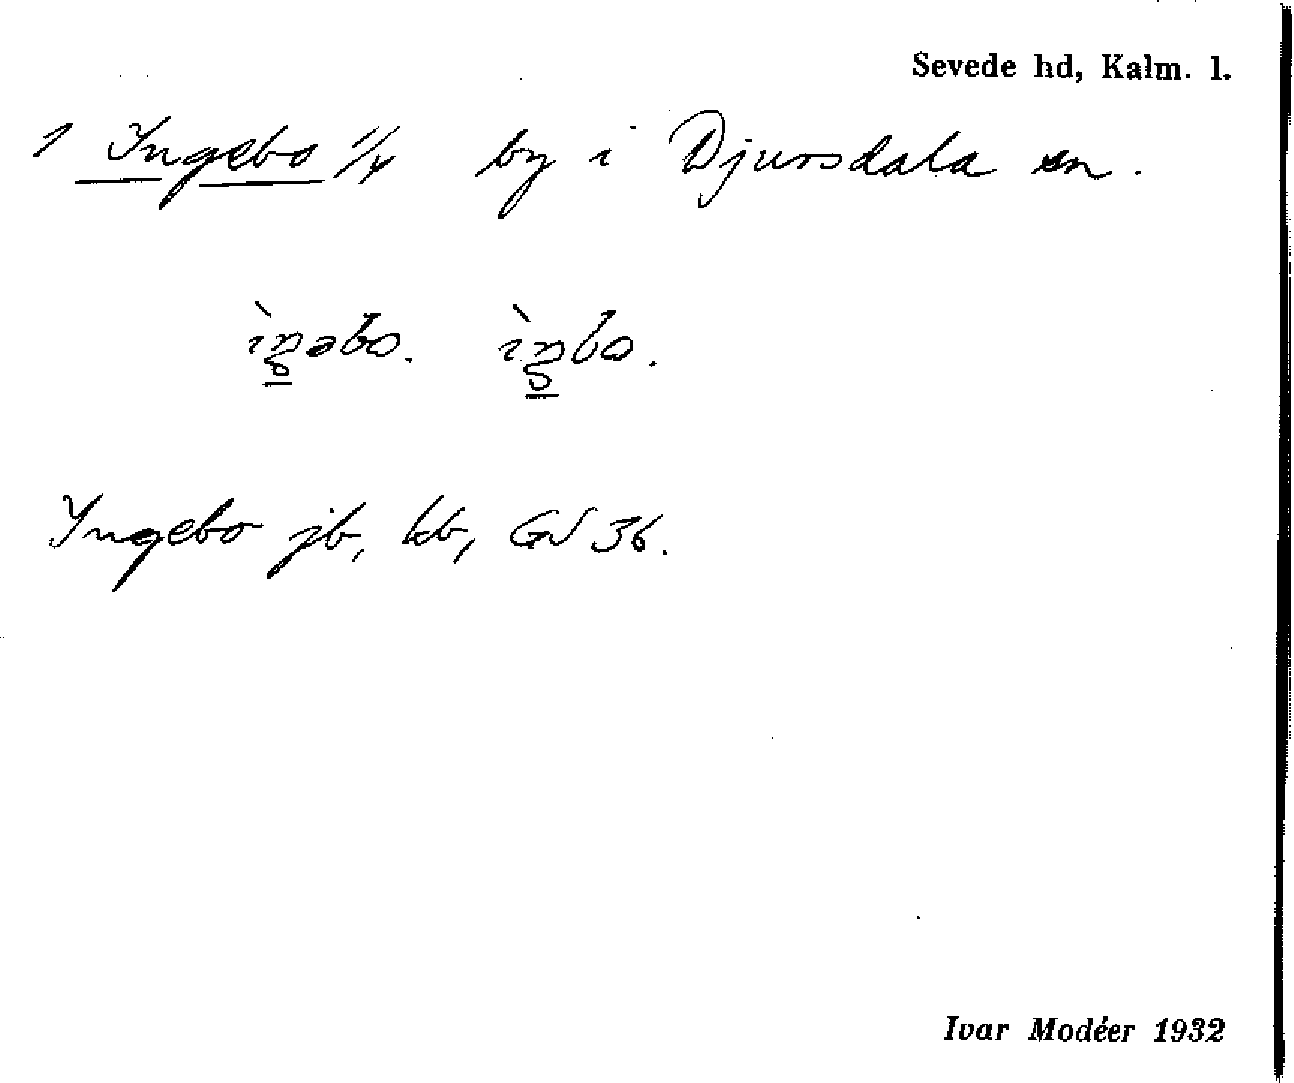 Sevede hd, Kalm. l.
1 Ingebo 1/4 by i Djursdala sn.
Ingebo jb, kb, GS 36.
Ivar Modéer 1932